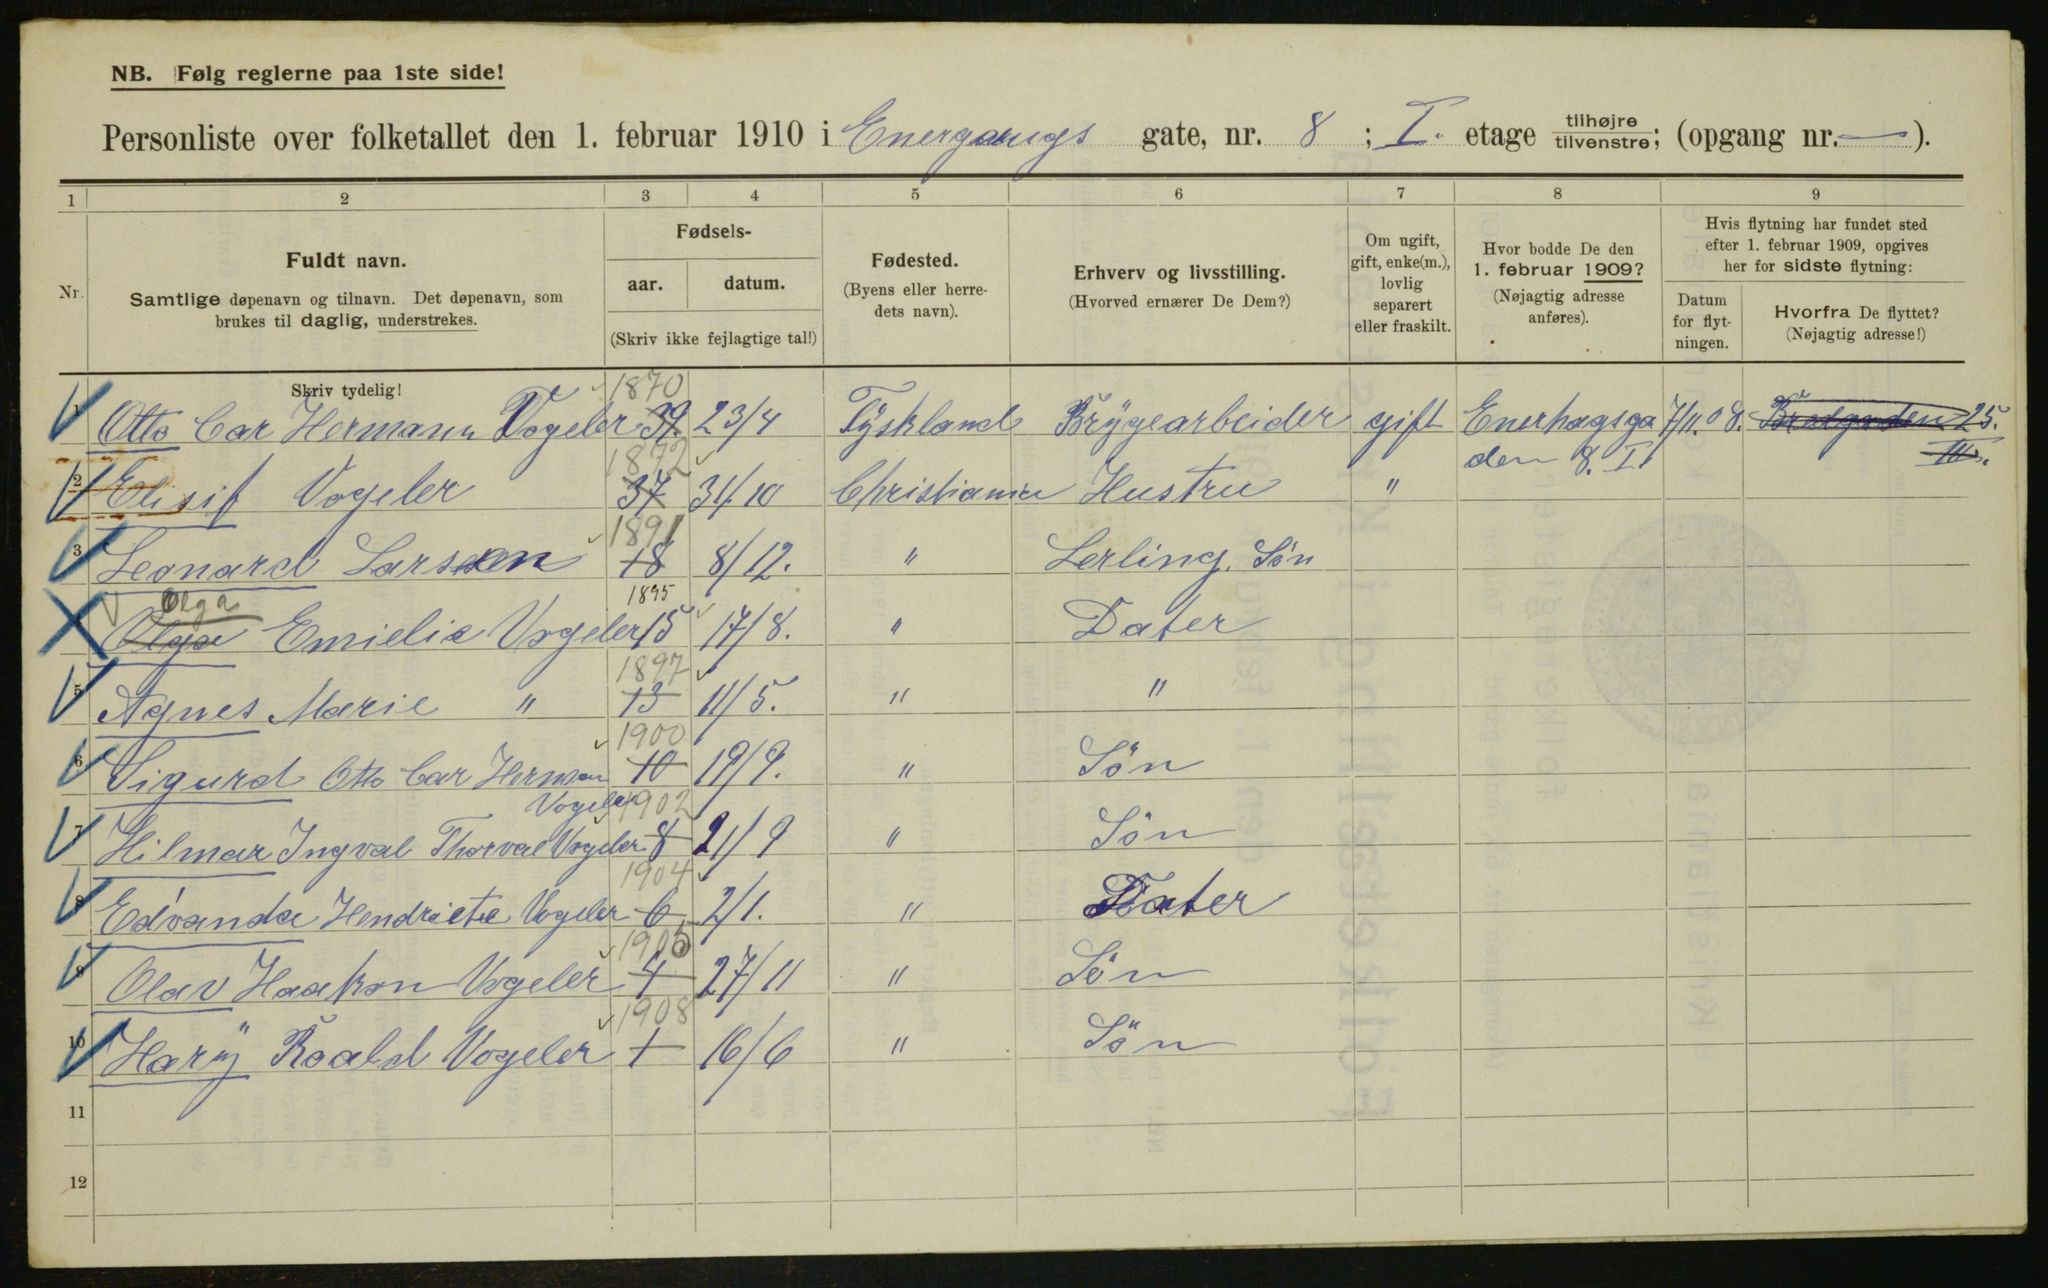 NB. Følg reglerne paa 1ste side!
Personliste over folketallet den 1. februar 1910 i Energaugs gate, nr. 8; I. etage tilhøjre/tilvenstre; (opgang nr. — ).
1 2 3 4 5 6 7 8 9
Nr.
Fuldt navn.
Samtlige døpenavn og tilnavn. Det døpenavn, som
brukes til daglig, understrekes.
Fødsels-
aar. datum.
(Skriv ikke fejlagtige tal!)
Fødested.
(Byens eller herre-
dets navn).
Erhverv og livsstilling.
(Hvorved ernærer De Dem?)
Om ugift,
gift, enke(m.),
lovlig
separert
eller fraskilt.
Hvor bodde De den
1. februar 1909?
(Nøjagtig adresse
anføres).
Hvis flytning har fundet sted
efter 1. februar 1909, opgives
her for sidste flytning:
Datum
for flyt-
ningen.
Hvorfra De flyttet?
(Nøjagtig adresse!)
Skriv tydelig!
1870
1 Otto Car Hermann Vogeler 39 23/4 Tyskland Brygearbeider gift Enerhagsga 7/11.08. 25.
den 8. I. III.
1872
2 Elisif Vogeler 37 31/10 Christiania Hustru "
1891
3 Leonard Larssen 18 8/12. " Lerling. Sön
Olga 1895
4 Olga Emielie Vogeler 15 17/8. " Dater
1897
5 Agnes Marie " 13 11/5. " "
1900
6 Sigurd Otto Car Herman 10 19/9. " Sön
Vogeler 1902
7 Hilmar Ingval Thorval Vogeler 8 21/9 " Sön
1904
8 Edvanda Hendriette Vogeler 6 2/1. " Dater
1905
9 Olav Haakon Vogeler 4 27/11 " Sön
1908
10 Harÿ Roald Vogeler 1 16/6 " Sön
11
12